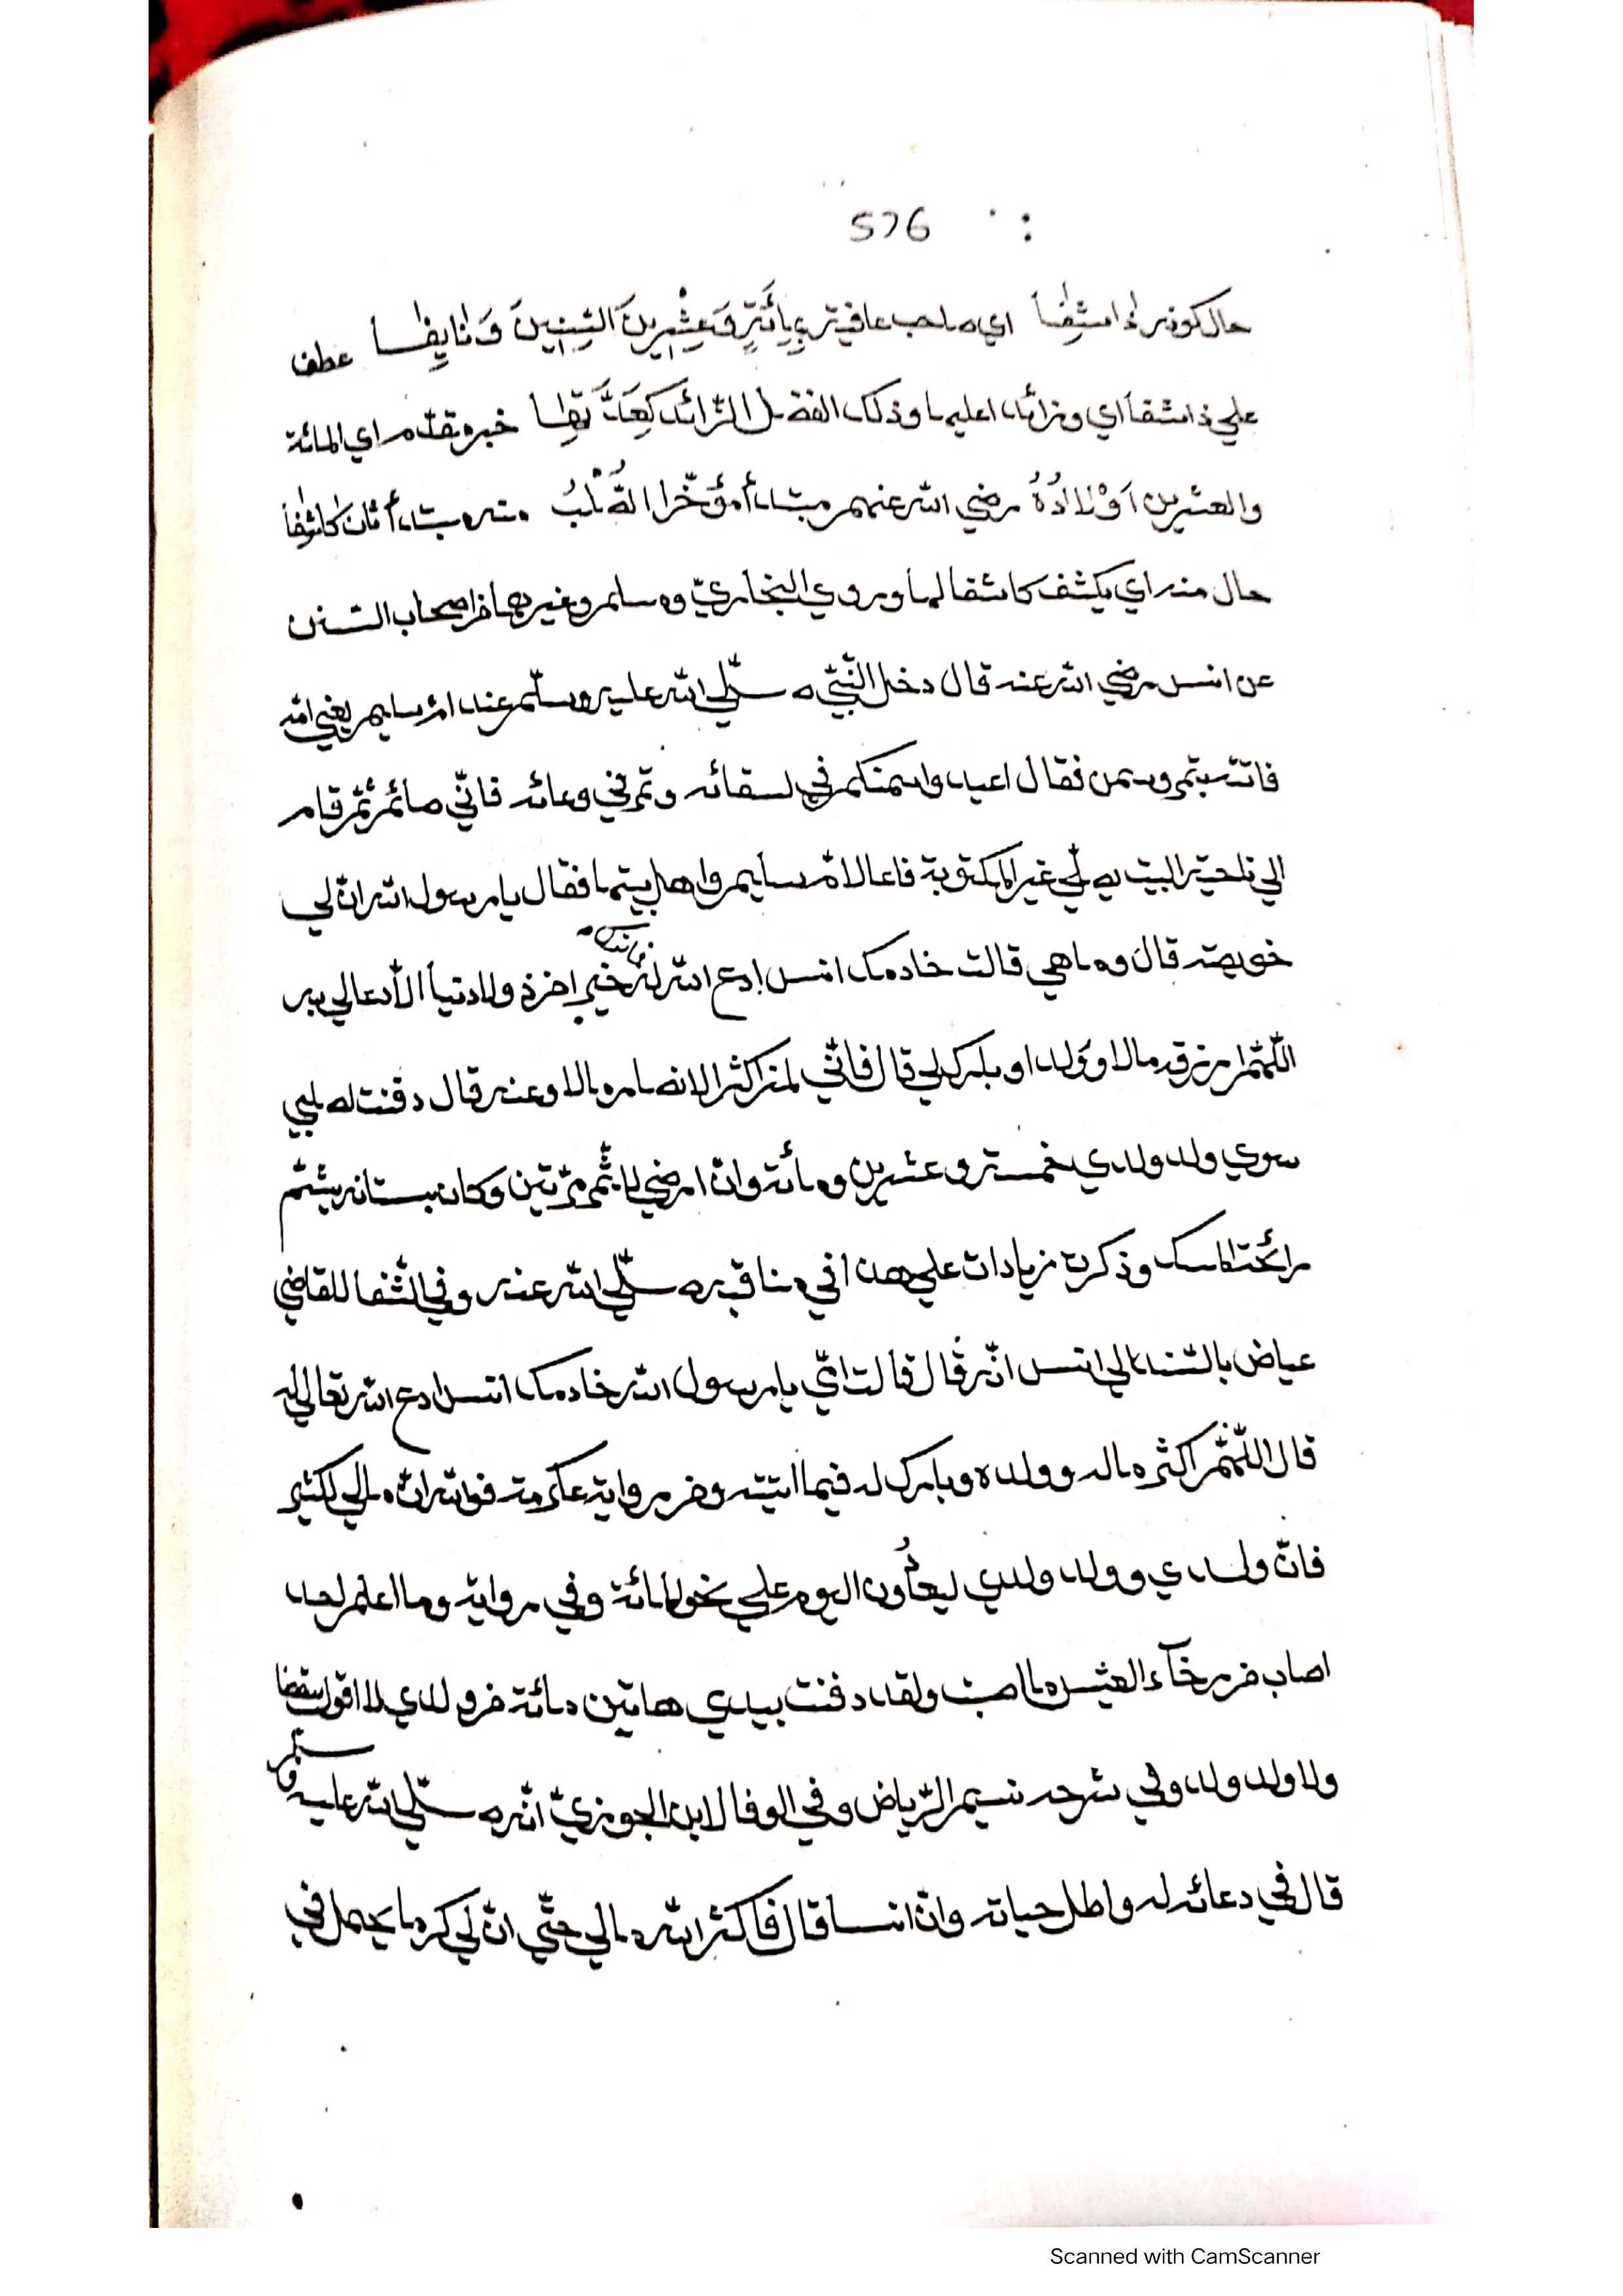 576
حال كونه ذا شفا اي صاحب عافية بمائة وعشرين السنين ونايفا عطف
علي ذا شفا اي وزائدا عليها وذلك الفضل الزائد كعد خبر مقدم اي المائة
والعشرين اولاده رضي الله عنهم مبتدأ مؤخر الصلب مبتدأ ثان كاشفا
حال منه اي يكشف كاشفا لها وروي البخاري ومسلم وغيرهما من اصحاب السنن
عن انس رضي الله عنه قال دخل النبي صلي الله عليه وسلم عند ام سليم يعني امه
فاتته بتمر وسمن فقال اعيدوا سمنكم في سقائه وتمر في وعائه فاني صائم ثم قام
الي ناحية البيت يصلي غير المكتوبة فدعا لام سليم واهل بيتها فقال يا رسول الله ان لي
خويصة قال وما هي قالت خادمك انس ادع الله له فما ترك خير اخرة ولا دنيا الا دعا لي به
اللهم ارزقه مالا وولدا وبارك لي قال فاني لمن اكثر الانصار مالا وعنه قال دفنت لصلبي
سوي ولد ولدي خمسة وعشرين ومائة وان ارضي لا تثمر مرتين وكان بستانه يشم
رائحة المسك وذكرت زيادات علي هذا في مناقبه صلي الله عنه وفي الشفا للقاضي
عياض بالسند الي انس انه قال قالت امي يا رسول الله خادمك انس ادع الله تعالي له
قال اللهم اكثر ماله وولده وبارك له فيما اتيته ومن رواية عكرمة فوالله ان مالي لكثير
فان ولدي وولد ولدي ليعادون اليوم علي نحو المائة وفي رواية وما اعلم احدا
اصاب من رخاء العيش ما اصبت ولقد دفنت بيدي هاتين مائة من ولدي لا اقول سقطا
ولا ولد ولد وفي شرحه نسيم الرياض وفي الوفا لابن الجوزي انه صلي الله عليه وسلم
قال في دعائه له واطل حياته وان انسا قال فاكثر الله مالي حتي ان لي كرما يحمل في
Scanned with CamScanner